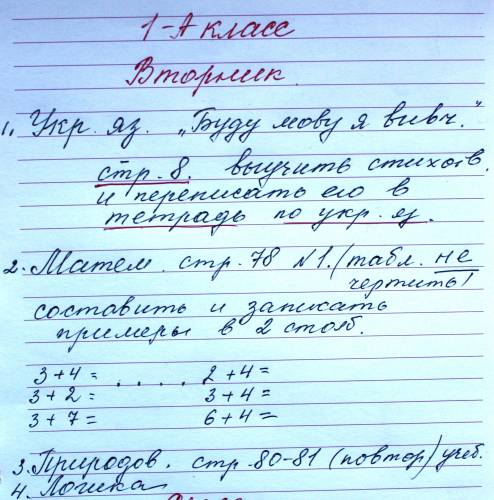 1-А класс
Вторник.
1. Укр. яз. „Буду мову я вивч."
стр. 8. выучить стихотв.
и переписать его в
тетрадь по укр. яз.
2. Матем. стр. 78 №1. (табл. не
чертить!
составить и записать
примеры в 2 столб.
3+4= . . . . 2+4=
3+2= 3+4=
3+7= 6+4=
3. Природов. стр. 80-81 (повтор) учеб.
4. Логика